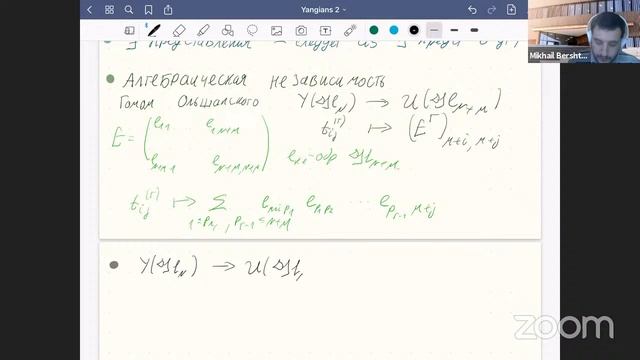 Yangians 2
Mikhail Bersht...
∃ представления – следует из ∃
• Алгебраическая независимость
Гомом Ольшанского Y(gl_N) → U(gl_{N+M})
t_{ij}^{(r)} ↦ (E^r)_{M+i, M+j}
E = ( e_{11} e_{1,N+M}
e_{N+M,1} e_{N+M,N+M} )
t_{ij}^{(r)} ↦ Σ e_{M+i,p_1} e_{p_1 p_2} ... e_{p_{r-1}, M+j}
• Y(gl_N) → U(gl
zoom